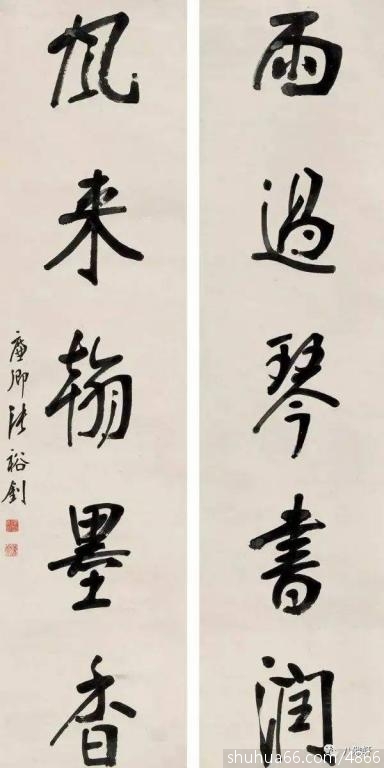 雨過琴書潤
風来翰墨香
廉卿張裕釗
shuhua66.com/4866